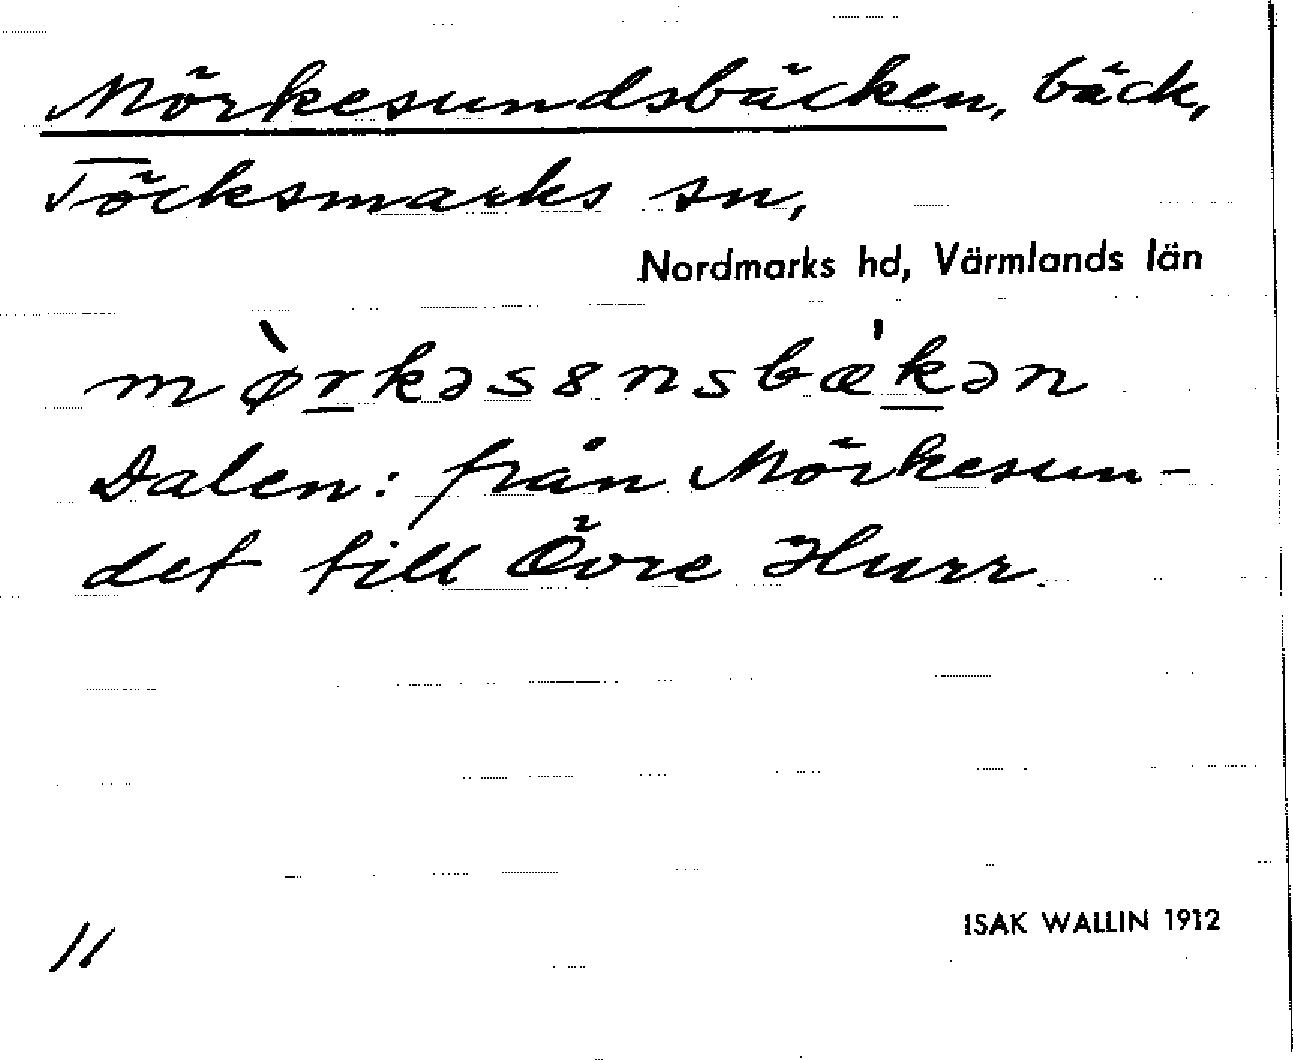 Mörkesundsbäcken, bäck,
Töcksmarks sn,
Nordmarks hd, Värmlands län
mø̀r̲kəs8nsbæ'k̲ən
Dalen: från Mörkesun-
det till Övre Hurr.
11
ISAK WALLIN 1912